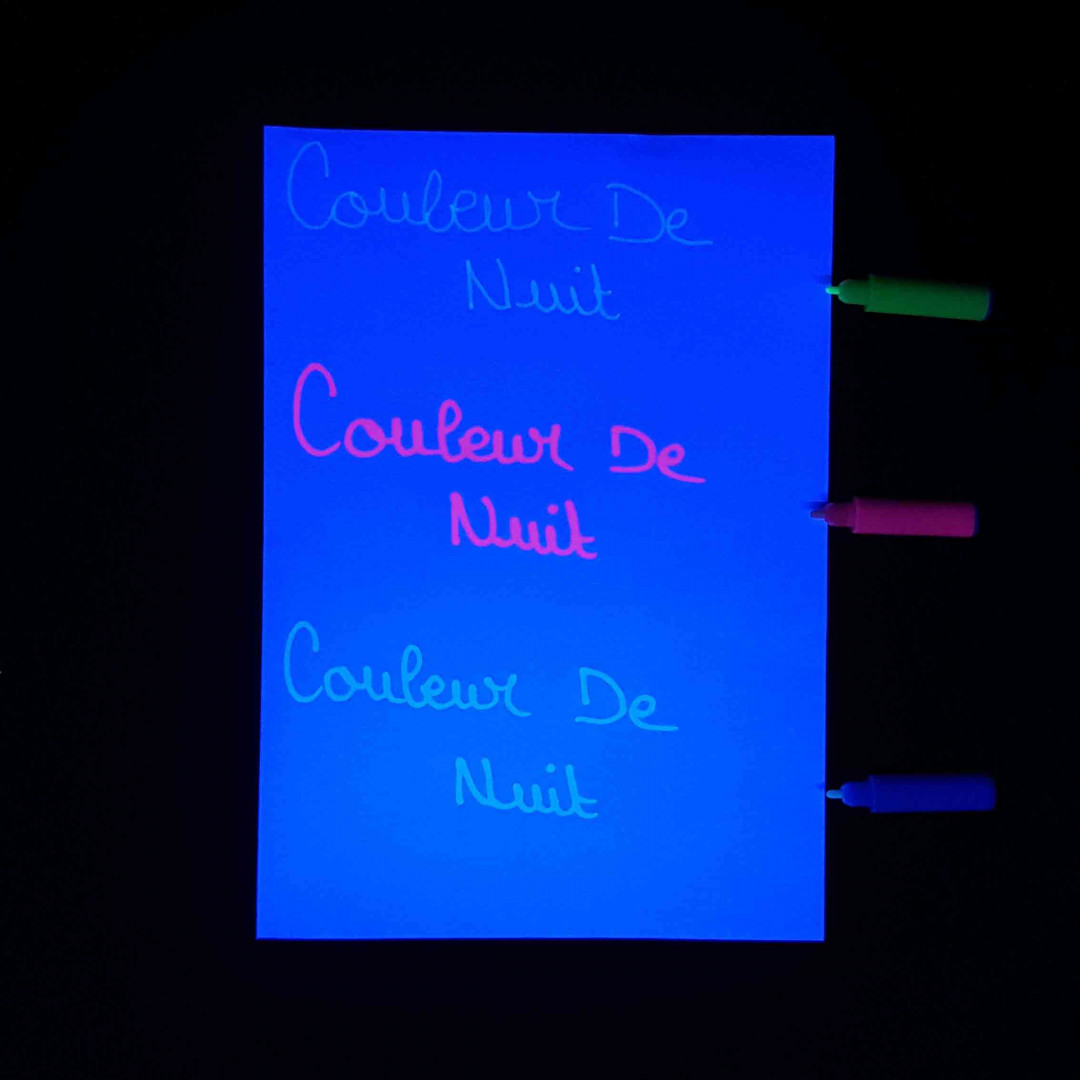 Couleur De
Nuit
Couleur De
Nuit
Couleur De
Nuit